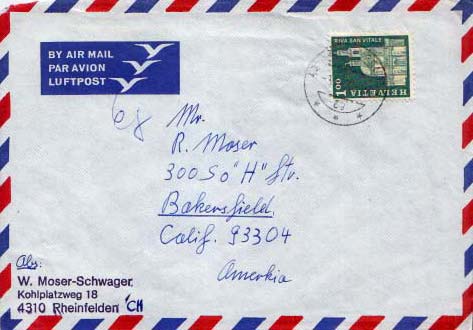 BY AIR MAIL
PAR AVION
LUFTPOST
RIVA SAN VITALE
100
HELVETIA
68
Mr.
R. Moser
300 So "H" Str.
Bakersfield,
Calif. 93304
Amerkia
Abs:
W. Moser-Schwager
Kohlplatzweg 18
4310 Rheinfelden CH